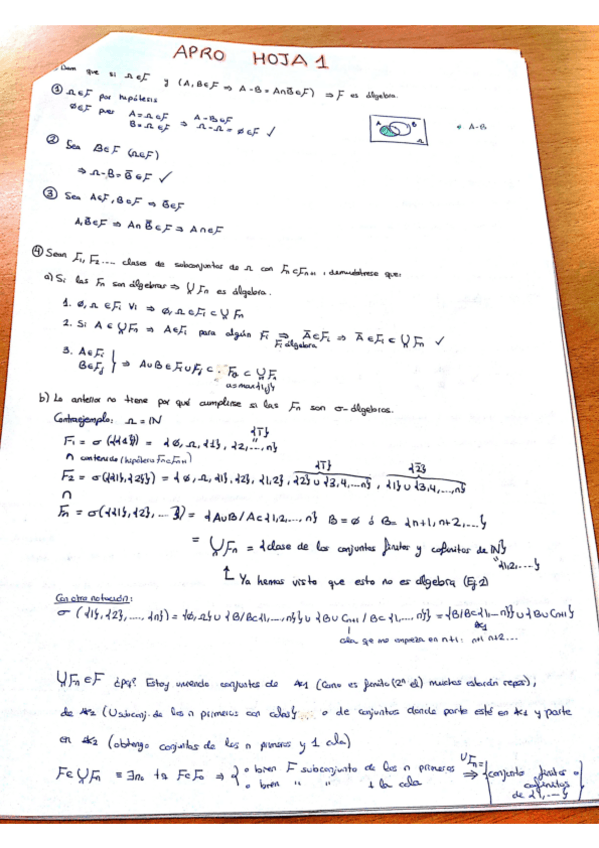 APRO HOJA 1
que si Ω∈F y (A,B∈F ⇒ A-B = A∩B̅∈F) ⇒ F es álgebra.
① Ω∈F por hipótesis
∅∈F pues A=Ω∈F B=Ω∈F ⇒ A-B∈F Ω-Ω=∅∈F ✓
A B
A-B
② Sea B∈F (Ω∈F)
⇒ Ω-B=B̅∈F ✓
③ Sea A∈F, B∈F ⇒ B̅∈F
A,B̅∈F ⇒ A∩B̅̅∈F ⇒ A∩B∈F
④ Sean F₁, F₂.... clases de subconjuntos de Ω con Fn⊂Fn+1, demuéstrese que:
a) Si las Fn son álgebras ⇒ ⋃Fn es álgebra.
1. ∅,Ω∈Fi ∀i ⇒ ∅,Ω∈Fi⊂⋃Fn
2. Si A∈⋃Fn ⇒ A∈Fi para algún Fi ⇒ A̅∈Fi ⇒ A̅∈Fi⊂⋃Fn ✓
Fi álgebra
3. A∈Fi B∈Fj } ⇒ A∪B∈Fi∪Fj⊂ Fa ⊂⋃Fn
a=max{i,j}
b) Lo anterior no tiene por qué cumplirse si las Fn son σ-álgebras.
Contraejemplo: Ω=ℕ
{1̅}
F₁=σ({{1}})={∅,Ω,{1},{2,...,n}
∩ contenido (hipótesis Fn⊂Fn+1)
{1̅} {2̅}
F₂=σ({{1},{2}})={∅,Ω,{1},{2},{1,2},{2}∪{3,4,...n},{1}∪{3,4,...,n}
∩
Fn=σ({{1},{2},...})={A∪B/A⊂{1,2,...,n} B=∅ ó B={n+1,n+2,...}
= ⋃Fn={clase de los conjuntos finitos y cofinitos de ℕ}
{1,2,...}
Ya hemos visto que esto no es álgebra (Ej 2)
Con otra notación:
σ({1},{2},...,{n})={∅,Ω}∪{B/B⊂{1,...,n}}∪{B∪Cn+1/B⊂{1,...,n}}={B/B⊂{1,...n}}∪{B∪Cn+1}
*1
cola que me empieza en n+1: n+1 n+2...
⋃Fn∈F ¿pq? Estoy uniendo conjuntos de *1 (como es finito (2ⁿ el) muchos estarán repes);
de *2 (U subconj. de los n primeros con colas) o de conjuntos donde parte esté en *1 y parte
en *2 (obtengo conjuntos de los n primeros y 1 cola)
F∈⋃Fn ≡ ∃n₀ tq F∈F₀ ⇒ { o bien F subconjunto de los n primeros
o bien " " + la cola
⋃Fn= ⇒ {conjuntos finitos o cofinitos de {1,...}